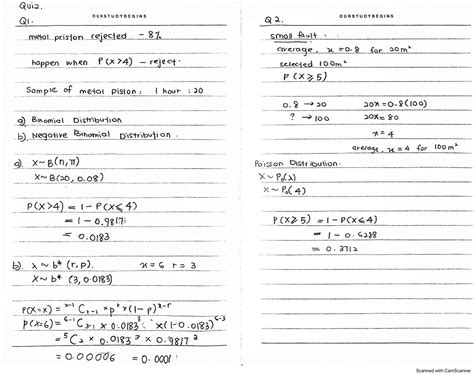 OURSTUDYBEGINS
Quiz.
Q1.
metal priston rejected - 8%
happen when P(X>4) - reject.
Sample of metal piston : 1 hour : 20
a) Binomial Distribution
b) Negative Binomial Distribution.
a) X~B(n,π)
X~B(20, 0.08)
P(X>4) = 1 - P(X≤4)
= 1 - 0.9817
= 0.0183
b). X~ b* (r, p). x = 6 r = 3
X~ b* (3, 0.0183)
P(X=x) = ˣ⁻¹Cᵣ₋₁ × pʳ × (1-p)ˣ⁻ʳ
P(X=6) = ⁶⁻¹C₃₋₁ × 0.0183³ × (1-0.0183)⁶⁻³
= ⁵C₂ × 0.0183³ × 0.9817³
= 0.00006 = 0.0001
OURSTUDYBEGINS
Q2.
small fault :
average, x = 0.8 for 20m²
selected 100m²
P(X≥5)
0.8 → 20 20x = 0.8(100)
? → 100 20x = 80
x = 4
average, x = 4 for 100m²
Poisson Distribution.
X~P₀(λ)
X~P₀(4)
P(X≥5) = 1 - P(X≤4)
= 1 - 0.6288
= 0.3712
Scanned with CamScanner